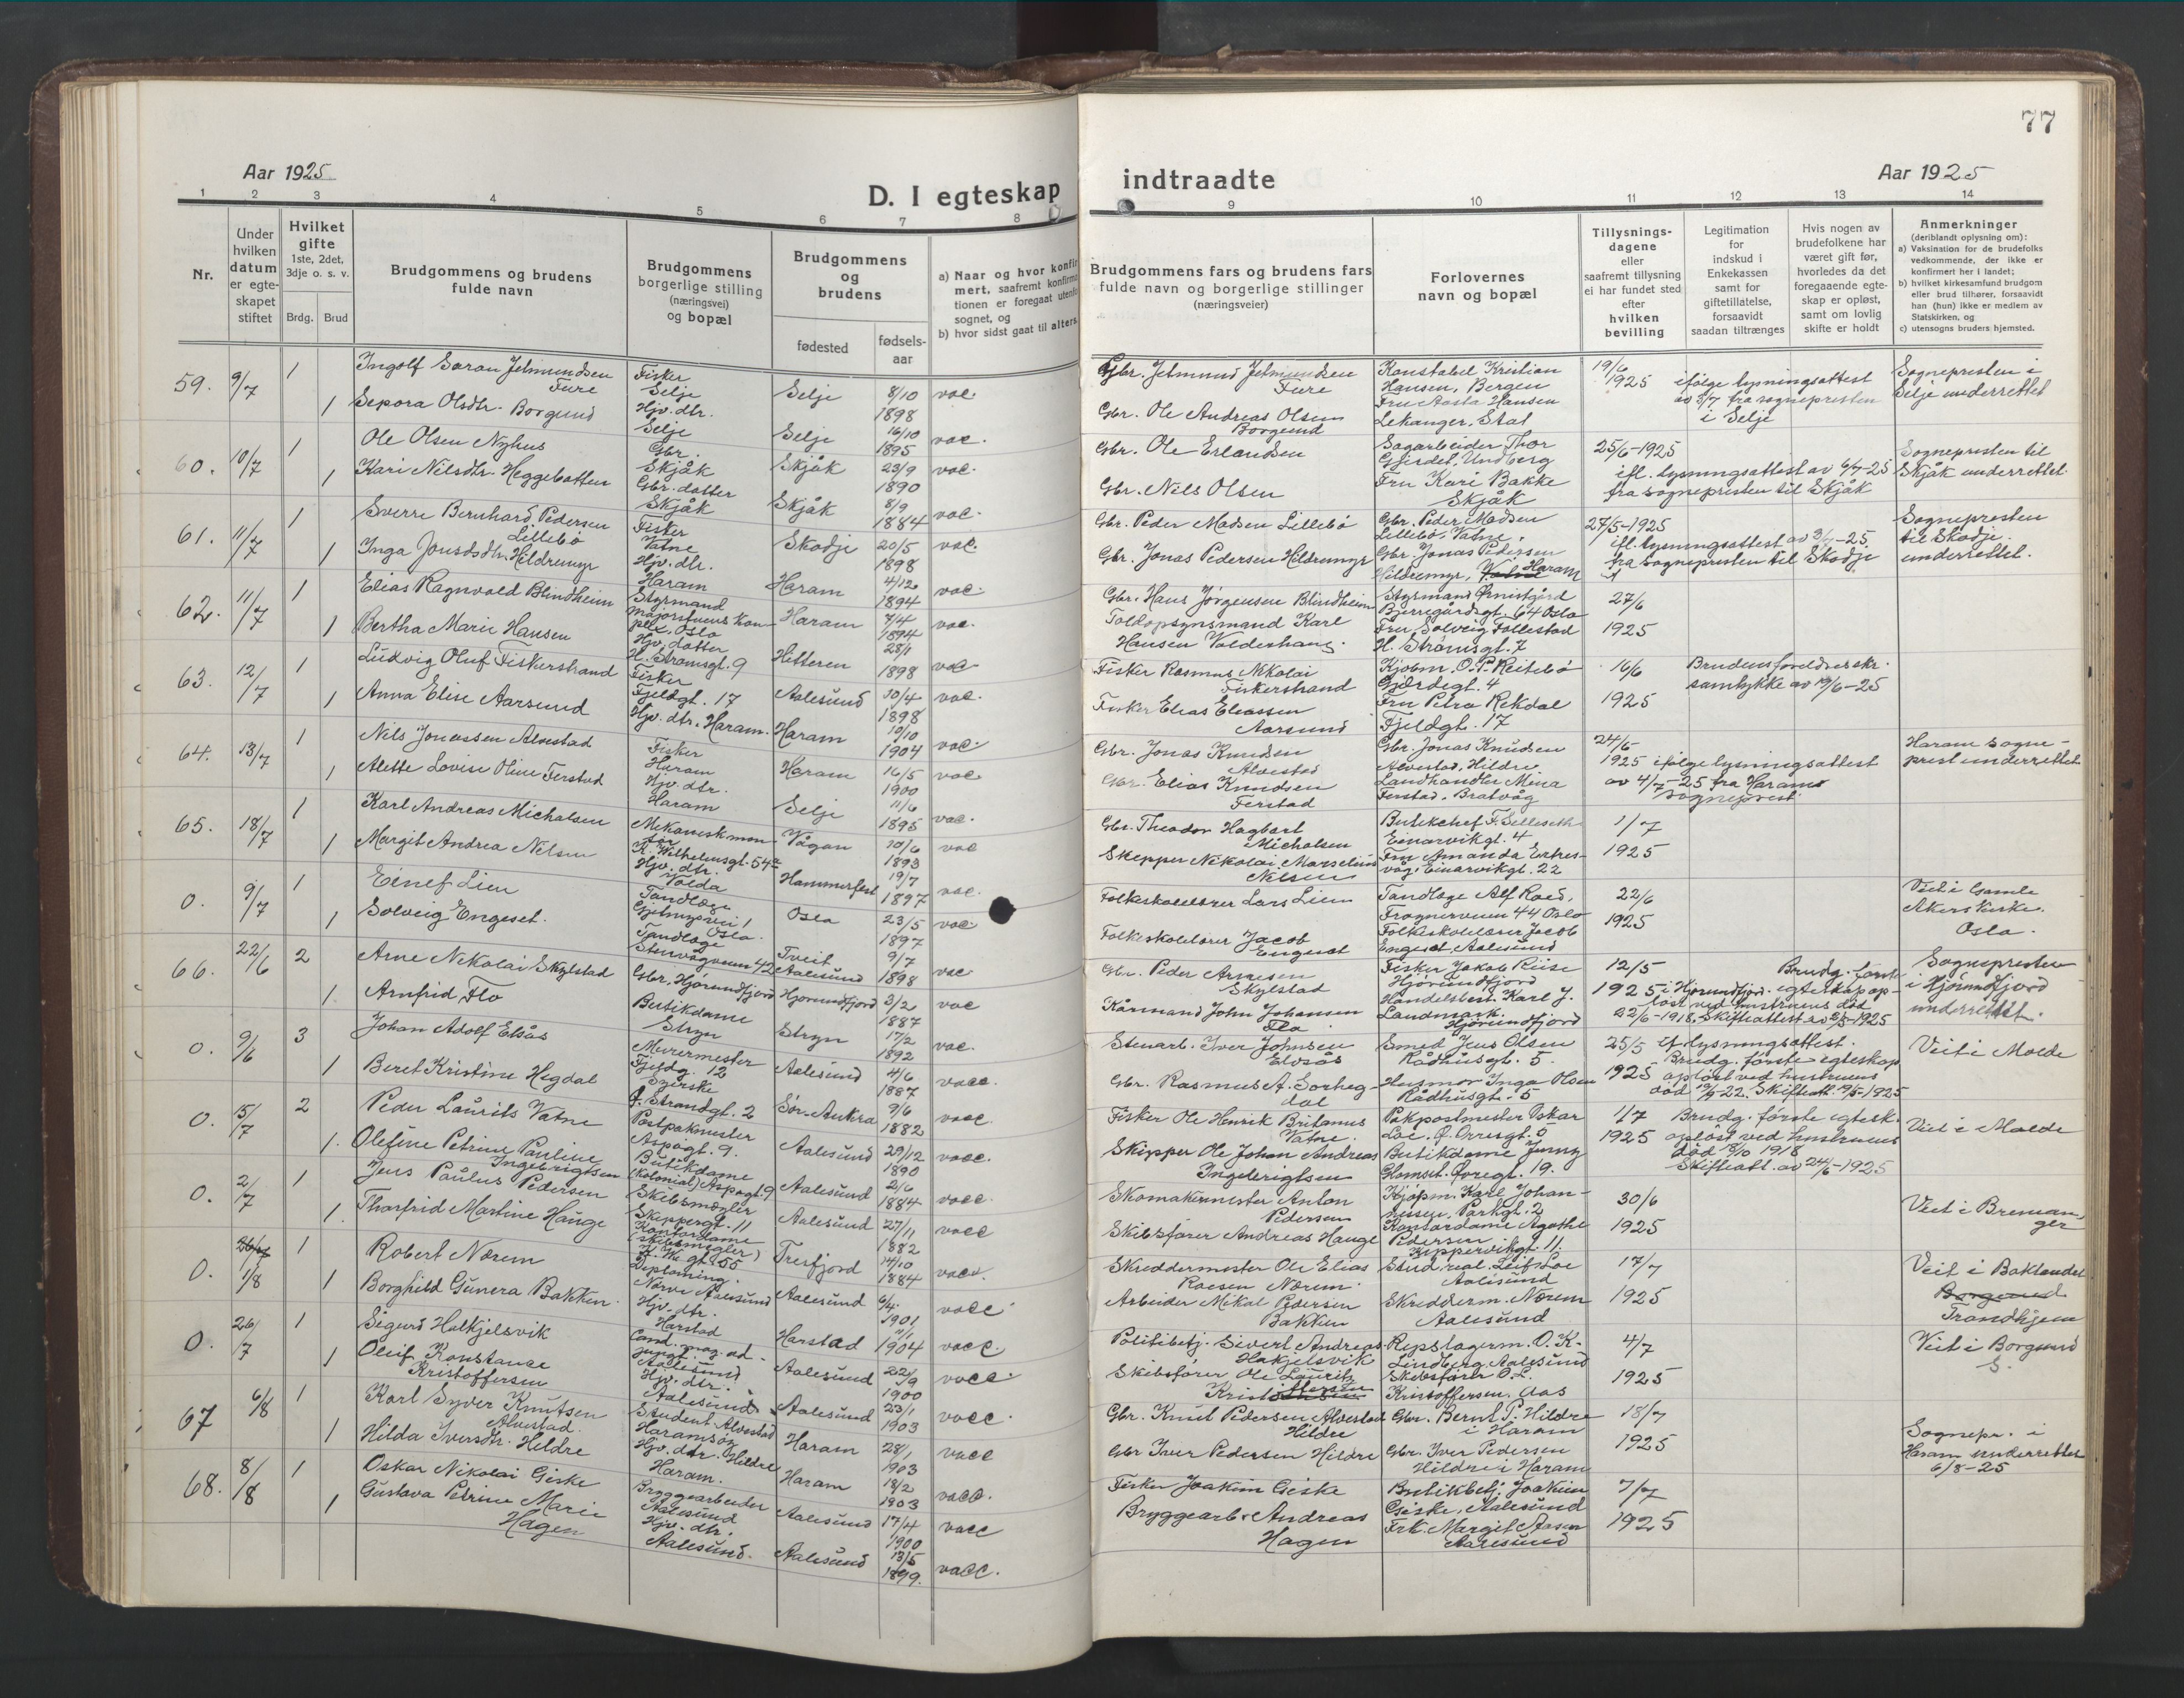 77
Aar 1925
D. I egteskap
indtraadte
Aar 1925
1 2 3 4 5 6 7 8 9 10 11 12 13 14
Nr.
Under hvilken datum er egte-skapet stiftet
Hvilket gifte 1ste, 2det, 3dje o. s. v.
Brdg. Brud
Brudgommens og brudens fulde navn
Brudgommens borgerlige stilling (næringsvei) og bopæl
Brudgommens og brudens
fødested
fødsels-aar
a) Naar og hvor konfir
mert, saafremt konfirma
tionen er foregaat utenfo
sognet, og
b) hvor sidst gaat til alters.
Brudgommens fars og brudens fars fulde navn og borgerlige stillinger (næringsveier)
Forlovernes navn og bopæl
Tillysnings-dagene eller saafremt tillysning ei har fundet sted efter hvilken bevilling
Legitimation for indskud i Enkekassen samt for giftetillatelse, forsaavidt saadan tiltrænges
Hvis nogen av brudefolkene har været gift før, hvorledes da det foregaaende egte-skap er opløst, samt om lovlig skifte er holdt
Anmerkninger
(deriblandt oplysning om):
a) Vaksination for de brudefolks vedkommende, der ikke er konfirmert her i landet;
b) hvilket kirkesamfund brudgom eller brud tilhører, forsaavidt han (hun) ikke er medlem av Statskirken, og
c) utensogns bruders hjemsted.
59. 9/7 1 Ingolf Søran Jetmundsen Fure Fisker Selje Selje 8/10 1898 vac.
1 Sepora Olsdtr. Borgund Hjv. dtr. Selje Selje 16/10 1895 vac.
Gbr. Jetmund Jetmundsen Fure
Gbr. Ole Andreas Olsen Borgund
Konstabel Kristian Hansen, Bergen
Fru Aasta Hansen Lekanger, Stat
19/6 1925 ifølge lysningsattest av 3/7 fra sognepresten i Selje
Sognepresten i Selje underrettet
60. 10/7 1 Ole Olsen Nyhus Gbr. Skjåk Skjåk 23/9 1890 vac.
1 Kari Nilsdtr. Heggebotten Gbr. datter Skjåk Skjåk 8/9 1884 vac.
Gbr. Ole Erlandsen
Gbr. Nils Olsen
Sagarbeider Thor Gjerdet, Undberg
Fru Kari Bakke Skjåk
25/6-1925 ifl. lysningsattest av 6/7-25 fra sognepresten til Skjåk
Sognepresten til Skjåk underrettet
61. 11/7 1 Sverre Bernhard Pedersen Lillebø Fisker Vatne Skodje 20/5 1898 vac.
1 Inga Jonsdtr. Hildremyr Hjv. dtr. Haram Haram 4/12 1894 vac.
Gbr. Peder Madsen Lillebø
Gbr. Jonas Pedersen Hildremyr
Gbr. Peder Madsen Lillebø, Vatne.
Gbr. Jonas Pedersen Hildremyr, Haram
27/5-1925 ifl. lysningsattest av 3/7-25 fra sognepresten til Skodje
Sognepresten til Skodje underrettet.
62. 11/7 1 Elias Ragnvald Blindheim Styrmand Oslo Haram 7/4 1894 vac.
1 Bertha Marie Hansen Hjv. datter H. Strømsgt. 9 Hitteren 28/1 1898 vac
Gbr. Hans Jørgensen Blindheim
Toldopsynsmand Karl Hansen Valderhaug.
Styrmand Bjerregårdsgt. 64 Oslo
Fru Solveig Follestad H. Strømsgt. 7
27/6 1925
63. 12/7 1 Ludvig Oluf Fiskerstrand Fisker Fjeldgt. 17 Aalesund 30/4 1898 vac.
1 Anna Elise Aarsund Hjv. dtr. Haram. Haram 10/10 1904 vac.
Fisker Rasmus Nikolai Fiskerstrand
Fisker Elias Eliassen Aarsund
Kjøbm. O. P. Reitebø Gjerdegt. 4
Fru Petra Rekdal Fjeldgt. 17
16/6 1925
Brudens foreldres skr. samtykke av 19/6-25
64. 13/7 1 Nils Jonassen Alvestad Fisker Haram Haram 16/5 1900 vac
1 Alette Lovise Oline Ferstad Hjv. dtr. Haram Selje 11/6 1895 vac.
Gbr. Jonas Knudsen Alvestad
Gbr. Elias Knudsen Ferstad
Gbr. Jonas Knudsen Alvestad, Hildre
Landhandler Mina Ferstad, Bratvåg
24/6 1925 ifølge lysningsattest av 4/7-25 fra Harams sogneprest.
Haram sogneprest underrettet
65. 18/7 1 Karl Andreas Micholsen Mekanisk montør K. Wilhelmsgt. 54a Vågan 10/6 1893 vac
1 Margit Andrea Nilsen Hjv. dtr. Volda Hammerfest 19/7 1897 vac.
Gbr. Theodor Hagbart Micholsen
Skipper Nikolai Marselius Nilsen
Butikchef F. Selleseth Einarvikgt. 4
Fru Amanda Extresvåg, Einarvikgt. 22
1/7 1925
0. 9/7 1 Einef Lien Tandlæge Oslo. Oslo 23/5 1897 vac
1 Solveig Engeset. Tandlæge Stenvågveien 42 Tveit Aalesund 9/7 1898 vac
Folkeskolelærer Lars Lien
Folkeskolelærer Jacob Engeset
Tandlæge Alf Roed, Frognerveien 44 Oslo
Folkeskolelærer Jacob Engeset, Aalesund
22/6 1925
Viet i Gamle Akers Kirke. Oslo.
66. 22/6 2 Arne Nikolai Skylstad Gbr. Hjørundfjord Hjørundfjord 3/2 1887 vac
1 Arnfrid Flo Butikdame Stryn Stryn 17/2 1892 vac.
Gbr. Peder Arnesen Skylstad
Kårmand John Johansen Flo
Fisker Jakob Riise Hjørundfjord
Handelsbest. Karl J. Landmark. Hjørundfjord
12/5 1925 i Hjørundfjord.
Brudg. første egteskap opløst ved hustruens død 22/6-1918. Skifteattest av 2/5-1925
Sognepresten i Hjørundfjord underrettet.
0. 9/6 3 Johan Adolf Elsås Murermester Fjeldg. 12 Aalesund 4/6 1887 vacc.
1 Beret Kristine Hegdal Syerske Ø. Strandgt. 2 Sør-Aukra 9/6 1882 vacc.
Stenarb. Iver Johnsen Elvsås
Gbr. Rasmus A. Sorhegdal
Smed Jens Olsen Rådhusgt. 5.
Husmor Inga Olsen Rådhusgt. 5
25/5 1925 ifl. lysningsattest.
Brudg. første egteskap opløst ved hustruens død 12/9-22. Skifteatt. 19/5-1925
Viet i Molde
0. 15/7 2 Peder Laurits Vatne Postpakmester Aspøgt. 9. Aalesund 29/12 1890 vacc.
1 Olefine Petrine Pauline Ingebrigtsen Butikdame (kolonial) Aspøgt. 9 Aalesund 2/6 1884 vacc.
Fisker Ole Henrik Britanus Vatne.
Skipper Ole Johan Andreas Ingebrigtsen
Pakpostmester Oskar Loe, Ø. Orrisgt. 5
Butikdame Jenny Glomset. Øvregt. 19.
1/7 1925
Brudg. første egtesk. opløst ved hustruens død 18/10 1918 Skifteatt. av 24/6-1925
Viet i Molde
0. 2/7 1 Jens Paulus Pedersen Skibsmægler Skippergt. 11 Aalesund 27/11 1882 vacc
1 Thorfrid Martine Hauge Kontordame (skibsmegler) K. W. gt. 55 Tresfjord 14/10 1884 vacc.
Skomakermester Anton Pedersen
Skibsfører Andreas Hauge
Kjøpm. Karl Johannessen, Parkgt. 2
Kontordame Agathe Pedersen Kippervikgt. 11.
30/6 1925
Viet i Bremanger
0. 1/8 1 Robert Nærem Diploming. Nørve Aalesund Aalesund 6/4 1901 vacc
1 Borghild Gunera Bakken. Hjv. dtr. Harstad Harstad 1904 vacc.
Skreddermester Ole Elias Roesen Nærem.
Arbeider Mikal Pedersen Bakken
Stud. real. Leif Loe Aalesund
Skredderm. Nærem Aalesund
17/7 1925
Viet i Baklandet Borgund Trondhjem
0. 26/7 1 Sigurd Hatkjelsvik Cand. mag. adjungt. Aalesund Aalesund 22/9 1900 vacc.
1 Oleif Konstanse Kristoffersen Hjv. dtr. Aalesund Aalesund 23/1 1903 vacc.
Politibetj. Sivert Andreas Hakjelsvik
Skibsfører Ole Lauritz Kristoffersen
Repslagerm. O. K. Lindberg, Aalesund
Skibsfører O. L. Kristoffersen, Aas
4/7 1925
Viet i Borgund S.
67 6/8 1 Karl Syver Knutsen Alvestad. Student Alvestad Haramsøy Haram 28/1 1903 vacc
1 Hilda Iversdtr. Hildre Hjv. dtr. Hildre Haram. Haram 18/2 1903 vacc.
Gbr. Knut Pedersen Alvestad Hildre
Gbr Iver Pedersen Hildre
Gbr. Bernt P. Hildre i Haram
Gbr. Iver Pedersen Hildre i Haram
18/7 1925
Sognepr. i Haram underrettet 6/8-25
68. 8/8 1 Oskar Nikolai Giske Bryggearbeider Aalesund Aalesund 17/4 1900 vacc
1 Gustava Petrine Marie Hagen Hjv. dtr. Aalesund. Aalesund 13/5 1899. vacc.
Fisker Joakim Giske
Bryggearb. Andreas Hagen
Butikbetj. Joakim Giske, Aalesund
Frk. Margit Aasen Aalesund
7/7 1925